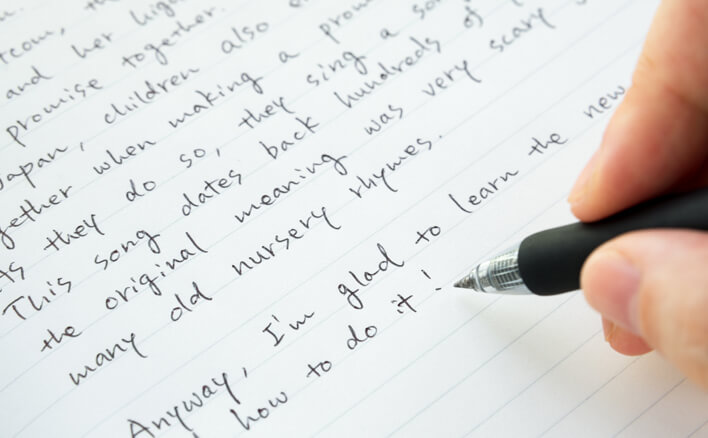 and her
promise together.
Japan, children also
together when making a
As they do so, they sing a
This song dates back hundreds of
the original meaning was very scary
many old nursery rhymes.
Anyway, I'm glad to learn the new
how to do it!